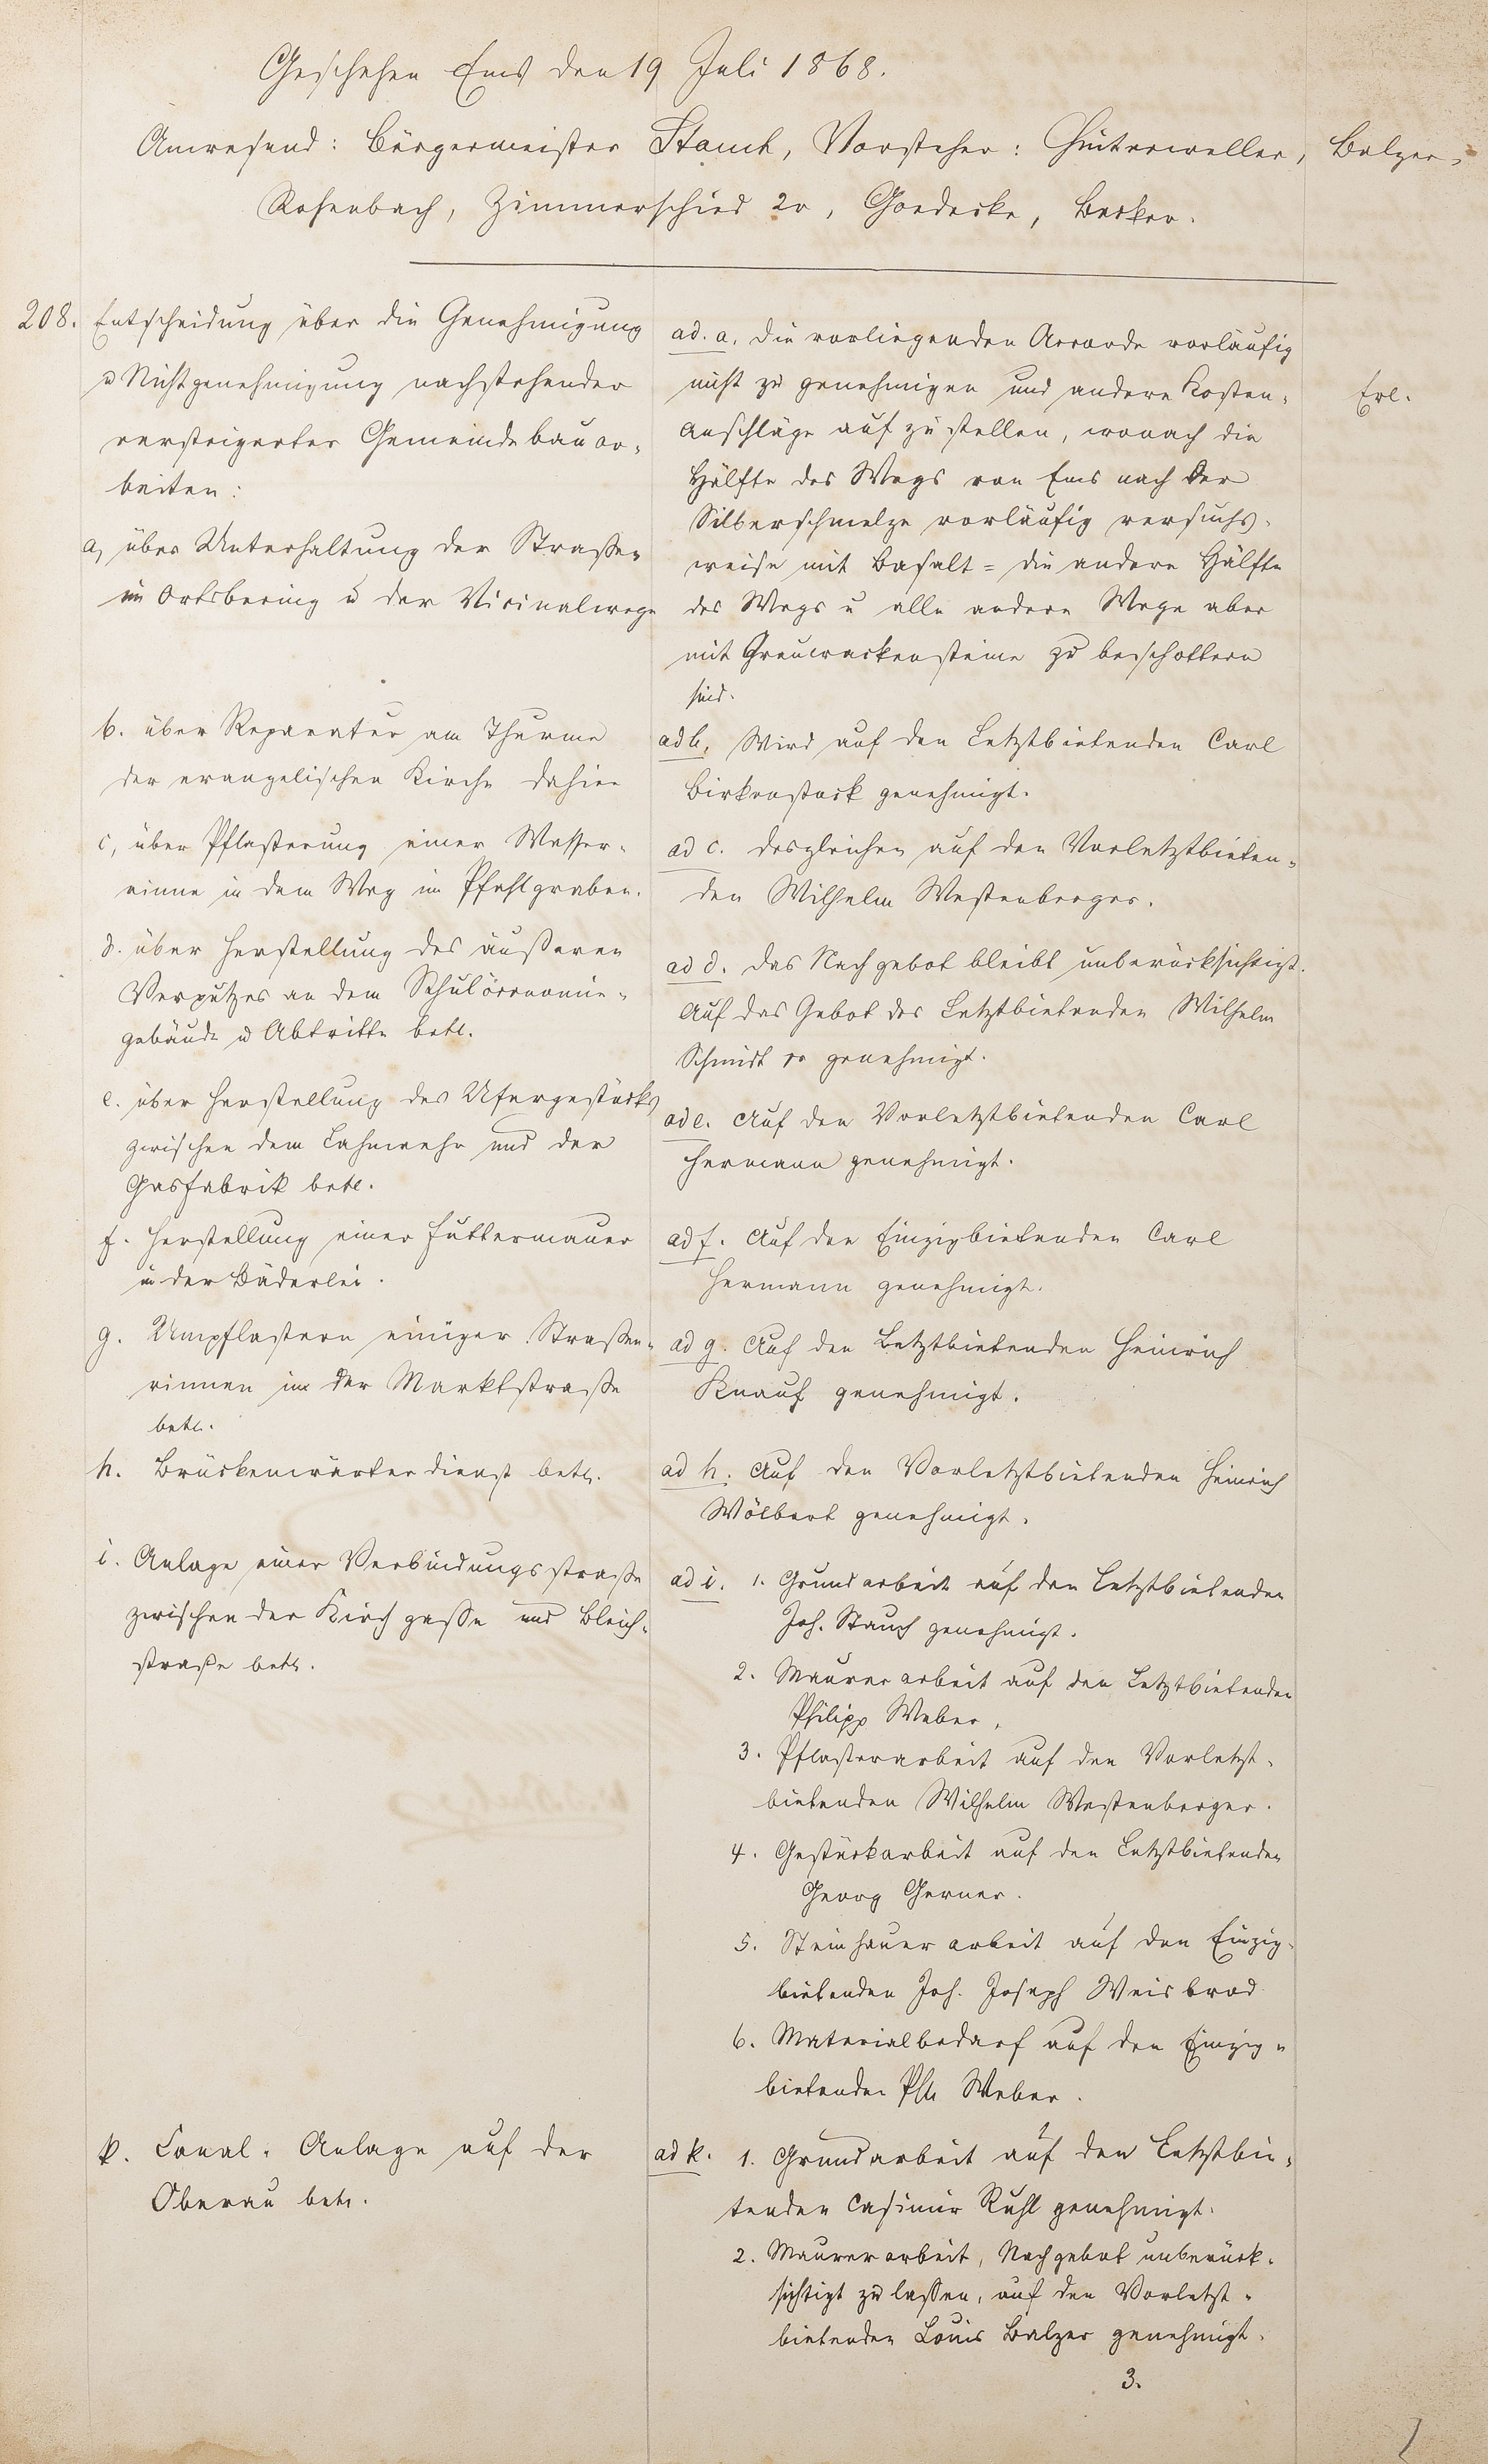 Geschehen Ems den 19 Juli 1868.
Anwesend: Bürgermeister Stauch, Vorsteher: Hinterweller, Balzer,
Rosenbach, Zimmerschied 2r, Goedecke, Becker.
208. Entscheidung über die Genehmigung
u Nichtgenehmigung nachstehender
versteigerter Gemeindebauar-
beiten:
a, über Unterhaltung der Straßen
im Ortsbering u der Vicinalwege
ad. a. Die vorliegenden Accorde vorläufig
nicht zu genehmigen und andere Kosten-
anschläge aufzustellen, wonach die
Hälfte des Wegs von Ems nach der
Silberschmelze vorläufig versuchs-
weise mit Basalt = die andere Hälfte
des Wegs u alle andere Wege aber
mit Grauwackensteine zu beschottern
sind.
Erl.
b. über Reparatur am Thurme
der evangelischen Kirche dahier
ad b, Wird auf den Letztbietenden Carl
Birkenstock genehmigt.
c, über Pflasterung einer Wasser-
rinne in dem Weg im Pfahlgraben.
ad c. desgleichen auf den Vorletztbieten-
den Wilhelm Westenberger.
d. über Herstellung des äußeren
Verputzes an dem Schulöconomie-
gebäude u Abtritte betr.
ad d. das Nachgebot bleibt unberücksichtigt.
Auf das Gebot des Letztbietenden Wilhelm
Schmidt genehmigt.
e. über Herstellung des Ufergestücks
zwischen dem Lahnwehr und der
Gasfabrik betr.
ad e. Auf den Vorletztbietenden Carl
Hermann genehmigt.
f. Herstellung einer Futtermauer
in der Bäderlei.
ad f. Auf den Einzigbietenden Carl
Hermann genehmigt.
g. Umpflastern einiger Straßen-
rinnen in der Marktstraße
betr.
ad g. Auf den Letztbietenden Heinrich
Knauf genehmigt.
h. Brückenwärterdienst betr.
ad h. Auf den Vorletztbietenden Heinrich
Wölbert genehmigt.
i. Anlage einer Verbindungsstraße
zwischen der Kirchgasse und Bleich-
straße betr.
ad i. 1. Grundarbeit auf den Letztbietenden
Joh. Stauch genehmigt.
2. Maurerarbeit auf den Letztbietenden
Philipp Weber,
3. Pflasterarbeit auf den Vorletzt-
bietenden Wilhelm Westenberger.
4. Gestückarbeit auf den Letztbietenden
Georg Gerner.
5. Steinhauerarbeit auf den Einzig-
bietenden Joh. Joseph Weisbrod
6. Materialbedarf auf den Einzig-
bietenden Weber.
k. Canal-Anlage auf der
Oberau betr.
ad k. 1. Grundarbeit auf den Letztbie-
tenden Casimir Ruhl genehmigt.
2. Maurerarbeit, Nachgebot unberück-
sichtigt zu lassen, auf den Vorletzt-
bietenden Louis Balzer genehmigt.
3.